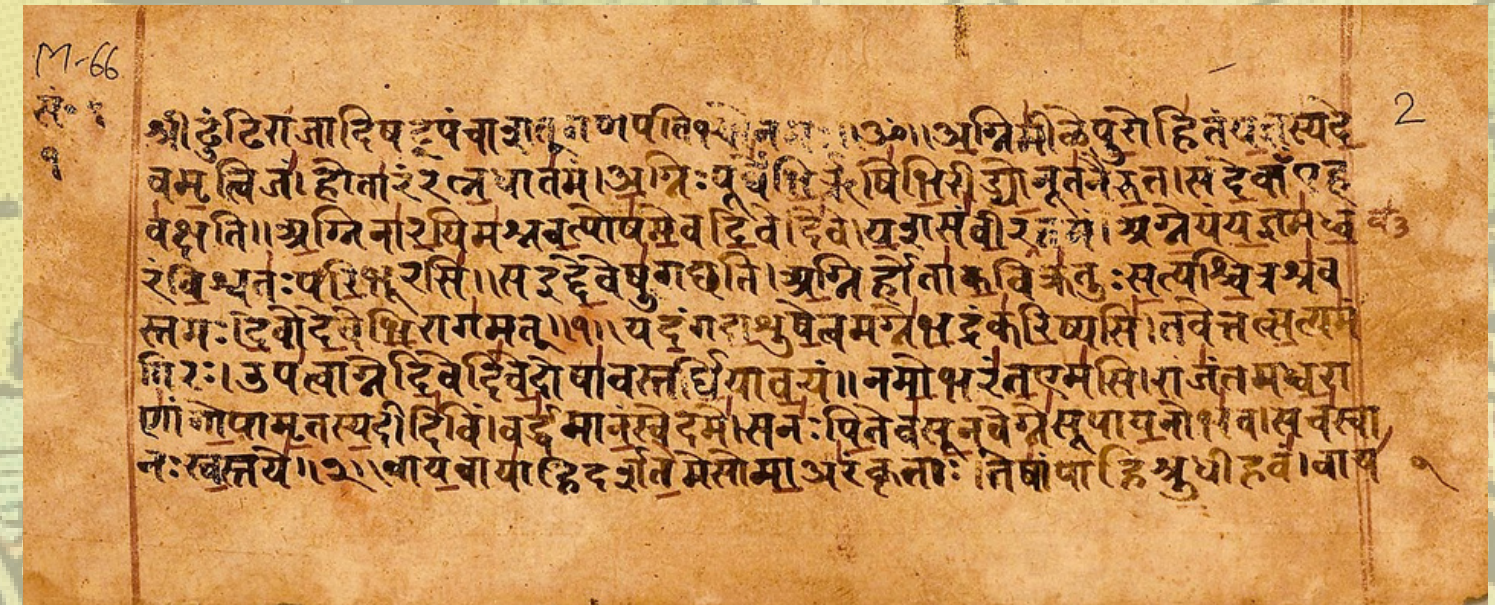 M-66
2
सं॰ १
१
श्रीढुंढिराजादिषट्पंचाशत् गणपतिभ्योनमः॥ॐ॥अग्निमीळेपुरोहितंयज्ञस्यदे
वमृत्विजं।होतारंरत्नधातमं।अग्निःपूर्वेभिर्ऋषिभिरीड्योनूतनैरुत।सदेवाँएह
वक्षति॥अग्निनारयिमश्नवत्पोषमेवदिवेदिवे।यशसंवीरवत्तमं।अग्नेयंयज्ञमध्व
रंविश्वतःपरिभूरसि॥सइद्देवेषुगच्छति।अग्निर्होताकविक्रतुःसत्यश्चित्रश्रव
स्तमः।देवोदेवेभिरागमत्॥१॥यदंगदाशुषेत्वमग्नेभद्रंकरिष्यसि।तवेत्तत्सत्यमं
गिरः।उपत्वाग्नेदिवेदिवेदोषावस्तर्धियावयं॥नमोभरंतएमसि।राजंतमध्वरा
णांगोपामृतस्यदीदिविं।वर्द्धमानंस्वेदमे।सनःपितेवसूनवेग्नेसूपायनोभव।सचस्वा
नःस्वस्तये॥२॥वायवायाहिदर्शतेमेसोमाअरंकृताः।तेषांपाहिश्रुधीहवं।वाय